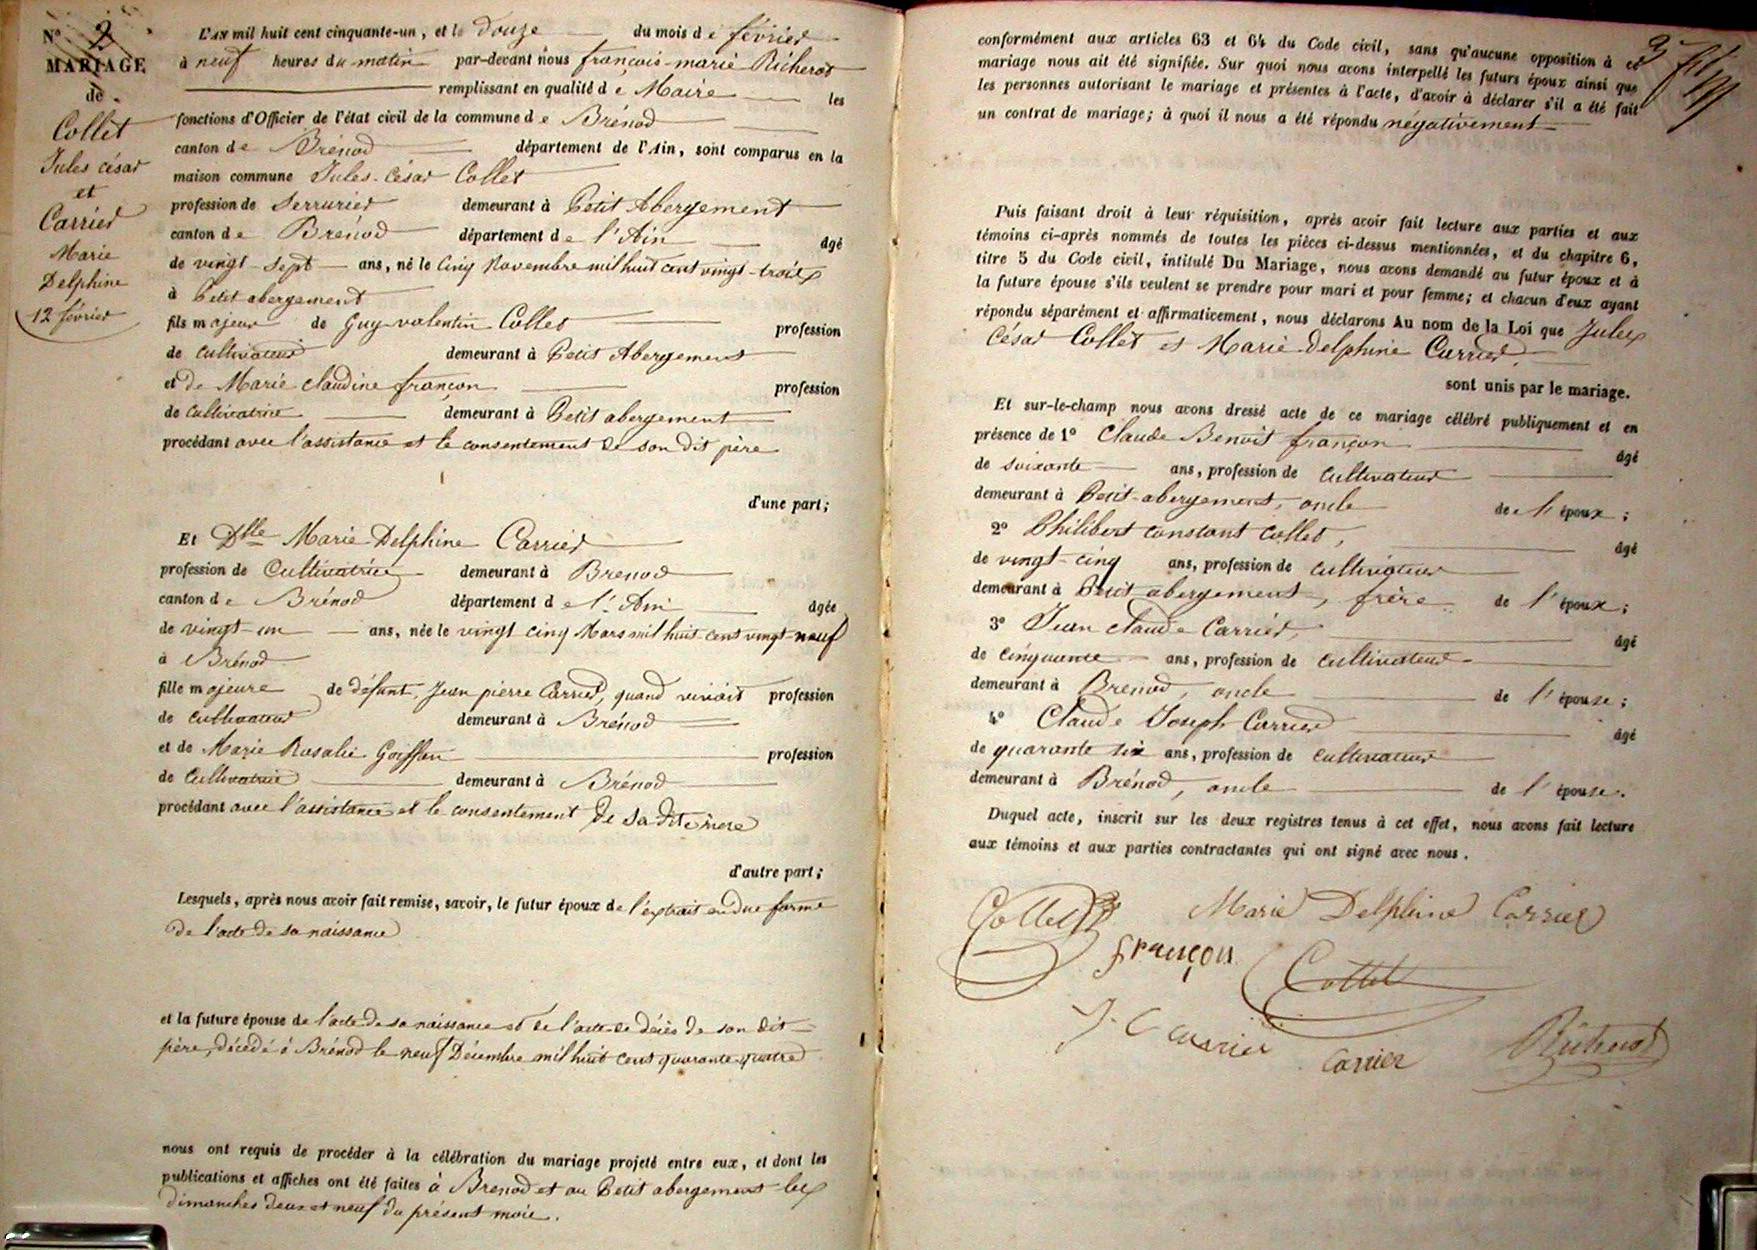 N° 2
MARIAGE
de
Collet
Jules césar
et
Carrier
Marie
Delphine
12 février
L'an mil huit cent cinquante-un, et le douze du mois de février
à neuf heures du matin par-devant nous françois-marie Richerot
remplissant en qualité de Maire les
fonctions d'Officier de l'état civil de la commune de Brénod
canton de Brénod département de l'Ain, sont comparus en la
maison commune Jules-César Collet
profession de Serrurier demeurant à Petit Abergement
canton de Brénod département de l'Ain âgé
de vingt-sept ans, né le Cinq Novembre mil huit cent vingt-trois
à Petit abergement
fils majeur de Guy-valentin Collet profession
de cultivateur demeurant à Petit Abergement
et de Marie claudine françon profession
de cultivatrice demeurant à Petit abergement
procédant avec l'assistance et le consentement de son dit père
d'une part;
Et Dlle Marie Delphine Carrier
profession de Cultivatrice demeurant à Brénod
canton de Brénod département de l'Ain âgée
de vingt-un ans, née le vingt cinq Mars mil huit cent vingt-neuf
à Brénod
fille majeure de défunt, Jean pierre Carrier, quand vivait profession
de cultivateur demeurant à Brénod
et de Marie Rosalie Goiffon profession
de Cultivatrice demeurant à Brénod
procédant avec l'assistance et le consentement de sa dite mère
d'autre part;
Lesquels, après nous avoir fait remise, savoir, le futur époux de l'extrait en due forme
de l'acte de sa naissance
et la future épouse de l'acte de sa naissance et de l'acte de décès de son dit
père, décédé à Brénod le neuf Décembre mil huit cent quarante quatre
nous ont requis de procéder à la célébration du mariage projeté entre eux, et dont les
publications et affiches ont été faites à Brénod et au Petit abergement les
dimanches deux et neuf du présent mois.
3
conformément aux articles 63 et 64 du Code civil, sans qu'aucune opposition à ce
mariage nous ait été signifiée. Sur quoi nous avons interpellé les futurs époux ainsi que
les personnes autorisant le mariage et présentes à l'acte, d'avoir à déclarer s'il a été fait
un contrat de mariage; à quoi il nous a été répondu négativement
Puis faisant droit à leur réquisition, après avoir fait lecture aux parties et aux
témoins ci-après nommés de toutes les pièces ci-dessus mentionnées, et du chapitre 6,
titre 5 du Code civil, intitulé Du Mariage, nous avons demandé au futur époux et à
la future épouse s'ils veulent se prendre pour mari et pour femme; et chacun d'eux ayant
répondu séparément et affirmativement, nous déclarons Au nom de la Loi que Jules
César Collet et Marie-Delphine Carrier
sont unis par le mariage.
Et sur-le-champ nous avons dressé acte de ce mariage célébré publiquement et en
présence de 1° Claude Benoit françon âgé
de soixante ans, profession de cultivateur
demeurant à Petit-abergement, oncle de l'époux;
2° Philibert constant Collet, âgé
de vingt-cinq ans, profession de cultivateur
demeurant à Petit abergement, frère de l'époux;
3° Jean claude Carrier, âgé
de cinquante ans, profession de cultivateur
demeurant à Brénod, oncle de l'épouse;
4° Claude Joseph Carrier âgé
de quarante six ans, profession de cultivateur
demeurant à Brénod, oncle de l'épouse.
Duquel acte, inscrit sur les deux registres tenus à cet effet, nous avons fait lecture
aux témoins et aux parties contractantes qui ont signé avec nous.
Collet Marie Delphine Carrier
françon Collet
J. C Carrier Carrier Richerot